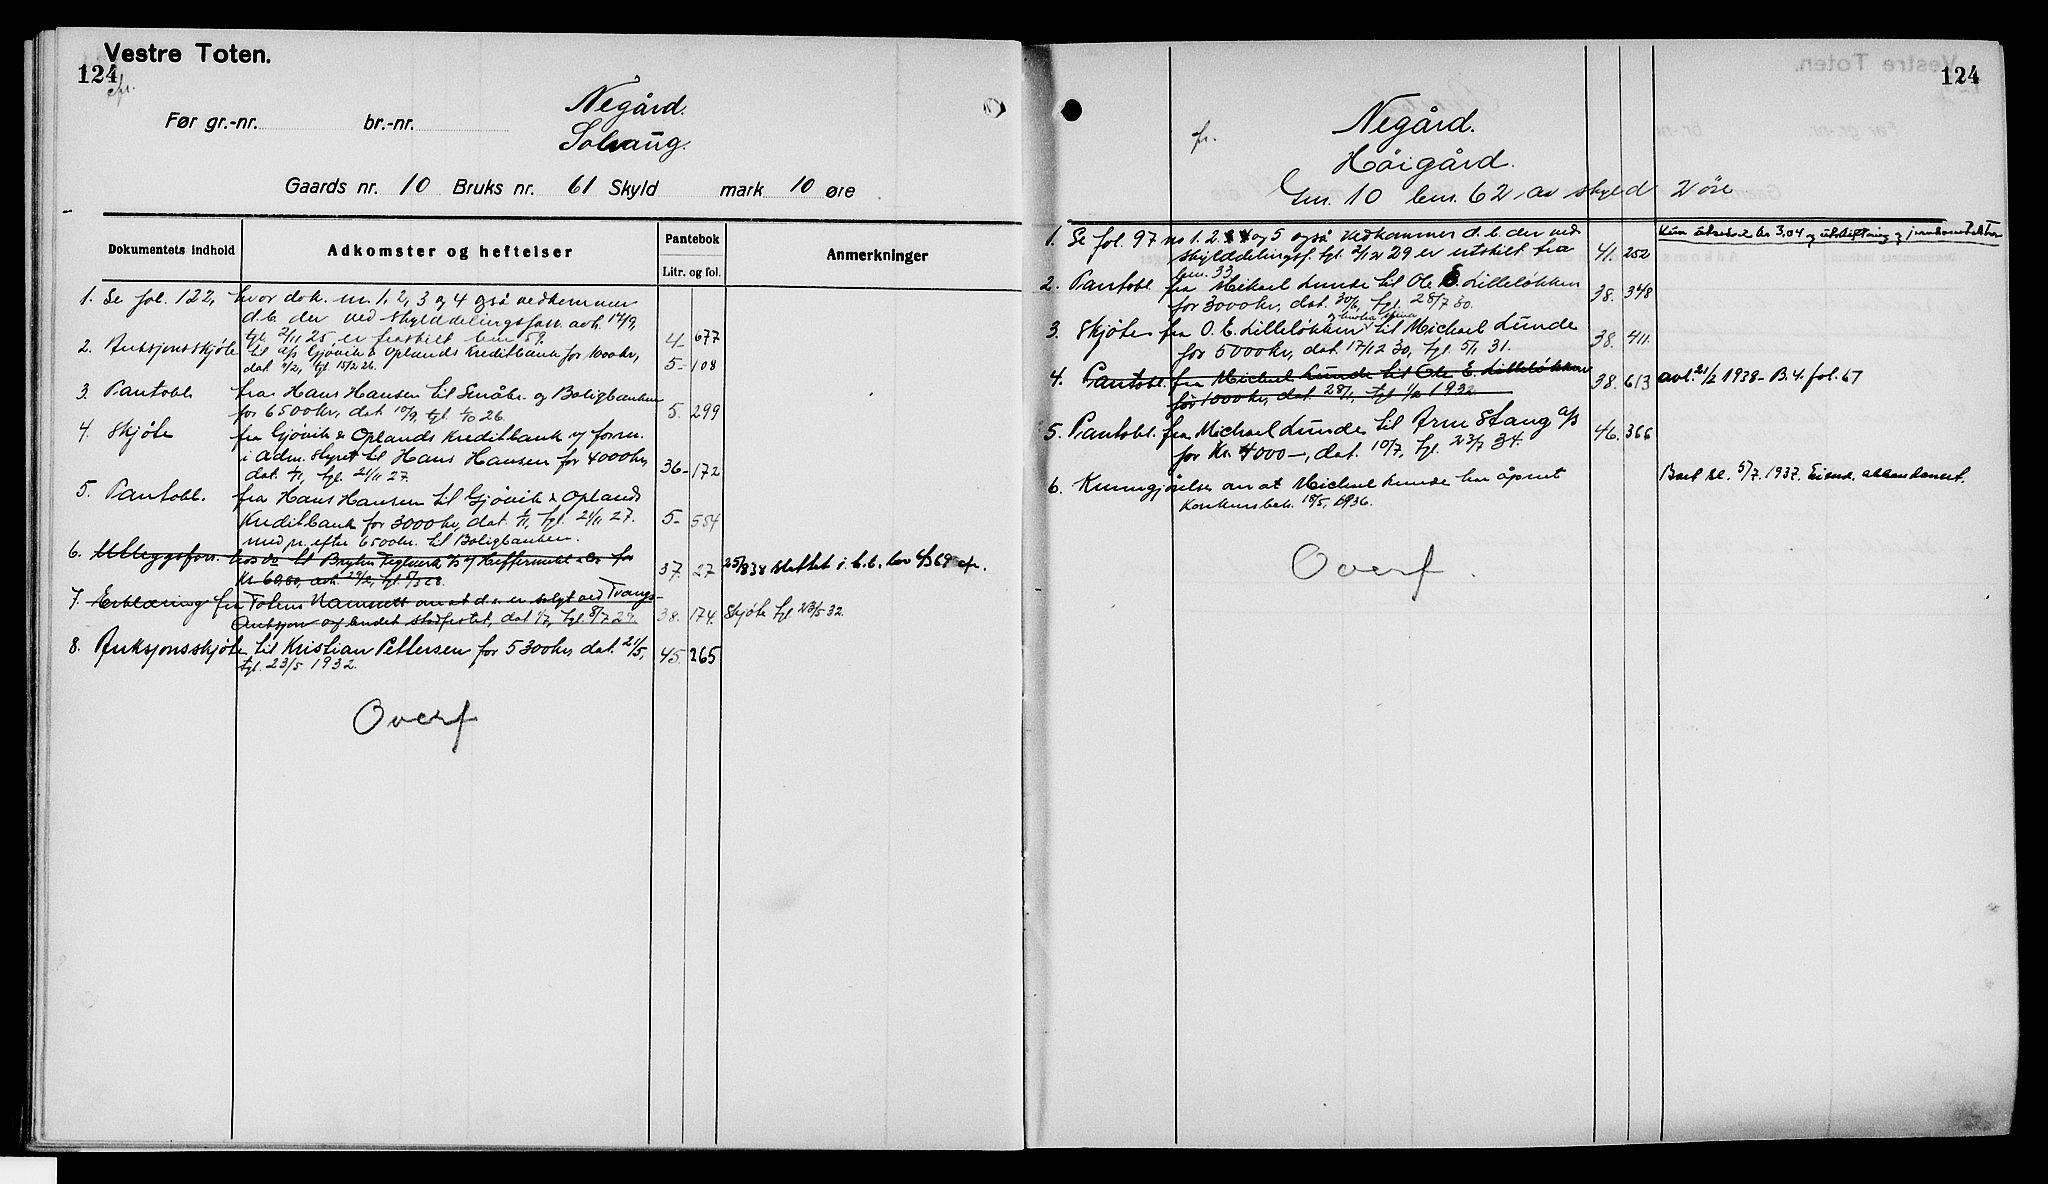 Vestre Toten.
124
Før gr.-nr. br.-nr.
Negård.
Solvaug.
Gaards nr. 10 Bruks nr. 61 Skyld mark 10 øre
Dokumentets indhold Adkomster og heftelser Pantebok Litr. og fol. Anmerkninger
1. Se fol. 122, hvor dok. nr. 1, 2, 3 og 4 også vedkommer
d.b. der ved skylddelingsforr. avh. 14/9,
tgl. 2/11 25, er fraskilt bnr 59. 4- 677
2. Auksjonsskjøte til A/S Gjøvik & Oplands Kreditbank for 1000 kr,
dat. /2, tgl. 15/2 26. 5- 108
3. Pantobl. fra Hans Hansen til Småbr. og Boligbanken
for 6500 kr, dat. 10/9, tgl. 26. 5. 299
4. Skjøte fra Gjøvik & Oplands Kreditbank v/ formn.
i adm. styret til Hans Hansen for 4000 kr,
dat. /11, tgl. 21/11 27. 36- 172
5. Pantobl. fra Hans Hansen til Gjøvik & Oplands
Kreditbank for 3000 kr, dat. /11, tgl. 21/11 27. 5- 554
med pr. efter 6500 kr. til Boligbanken.
6. Utleggsforr. hos do til Teglverk for
kr. avh. 29/2, tgl. 28. 37. 27 25/8 38 slettet i h.t. lov
7. Erklæring fra Totens Namsrett om at d.e. er solgt ved Tvangs-
Auksjon og budet stadfestet, dat. 1/7, tgl. 8/7 29. 38. 174. Skjøte tgl. 23/5 32.
8. Auksjonsskjøte til Kristian Pettersen for 5300 kr, dat. 21/5,
tgl. 23/5 1932. 45. 265
Overf
124
fr.
Negård.
Høigård.
Gnr. 10 bnr. 62 av skyld 2 øre
1. Se fol. 97 nr 1. 2. og 5 også vedkommer d.b. der ved
skylddelingsf. tgl. 2/12 29 er utskilt fra
bnr. 33 41. 252 Kun
2. Pantobl. fra Mikael Lunde til Ole E. Lilleløkken
for 3000 kr, dat. 30/6, tgl. 28/7 30. 38. 348
3. Skjøte fra O. E. Lilleløkken til Michael Lunde
for 5000 kr, dat. 17/12 30, tgl. 5/1 31. 38. 411.
4. Pantobl. fra Michael Lunde til Ole E. Lilleløkken
for 1000 kr, dat. 28/1, tgl. 1/2 1932. 38. 613 avl. 21/2 1938- B.4. fol. 67
5. Pantobl. fra Michael Lunde til Arne Stang A/S
for Kr. 4000-, dat. 10/7, tgl. 23/7 34. 46. 366
6. Kunngjørelse om at Michael Lunde har åpnet
Konkursbeh. 18/5, 1936. Bort sl. 5/7. 1937. Eiend. abandonert.
Overf.